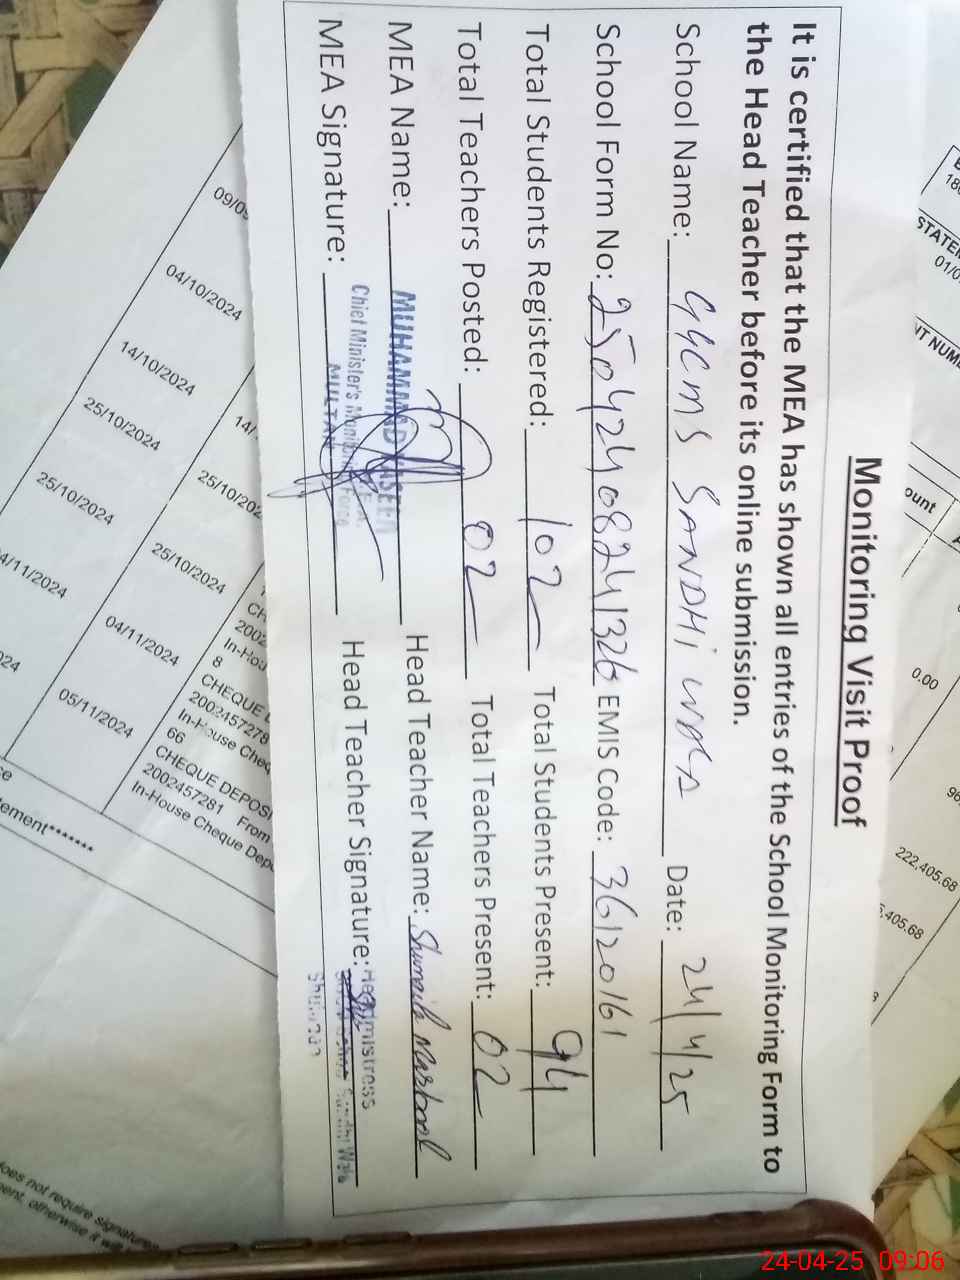 Monitoring Visit Proof
It is certified that the MEA has shown all entries of the School Monitoring Form to
the Head Teacher before its online submission.
School Name: GGCMS SANDHI WALA Date: 24/4/25
School Form No: 25042408241326 EMIS Code: 36120161
Total Students Registered: 102 Total Students Present: 94
Total Teachers Posted: 02 Total Teachers Present: 02
MEA Name: MUHAMMAD Head Teacher Name:
Chief Minister's Monitoring Force
MEA Signature: Head Teacher Signature:
MULTAN
Headmistress
09/09
04/10/2024
14/10/2024
25/10/2024
25/10/2024
4/11/2024
14/
25/10/202
25/10/2024
04/11/2024
05/11/2024
2002
In-Hou
8
CHEQUE
2002457278
In-House Cheq
66
CHEQUE DEPOSI
2002457281 From
In-House Cheque Depo
ement*******
oes not require signature
ent, otherwise it will
STATEM
01/0
NT NUM
ount
0.00
96
222,405.68
5,405.68
24-04-25 09:06